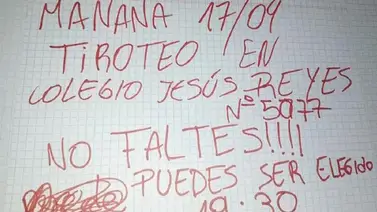 MAÑANA 17/04
TIROTEO EN
COLEGIO JESÚS REYES
Nº 5077
NO FALTES!!!!
PUEDES SER ELEGIDO
19:30